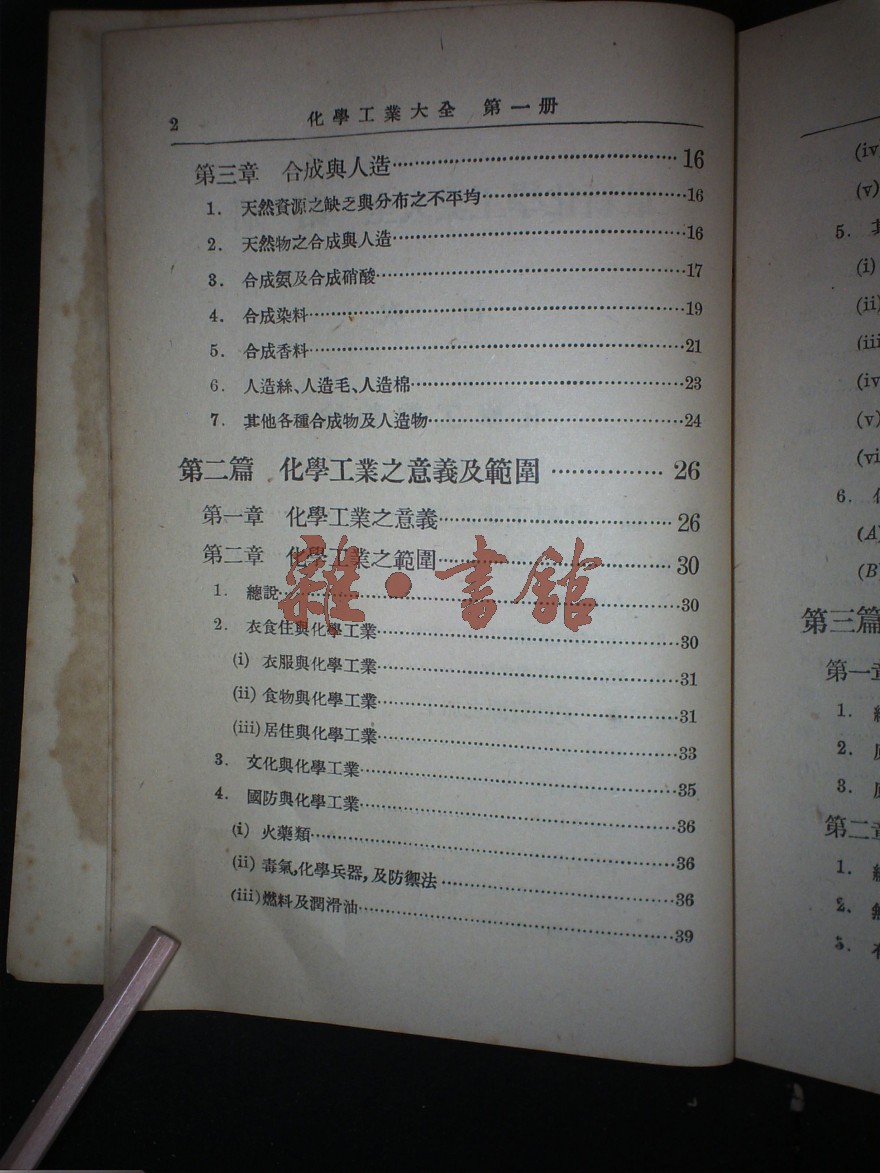 2 化學工業大全 第一册
第三章 合成與人造 16
1. 天然資源之缺乏與分布之不平均 16
2. 天然物之合成與人造 16
3. 合成氨及合成硝酸 17
4. 合成染料 19
5. 合成香料 21
6. 人造絲、人造毛、人造棉 23
7. 其他各種合成物及人造物 24
第二篇 化學工業之意義及範圍 26
第一章 化學工業之意義 26
第二章 化學工業之範圍 30
1. 總說 30
2. 衣食住與化學工業 30
(i) 衣服與化學工業 31
(ii) 食物與化學工業 31
(iii) 居住與化學工業 33
3. 文化與化學工業 35
4. 國防與化學工業 36
(i) 火藥類 36
(ii) 毒氣,化學兵器,及防禦法 36
(iii) 燃料及潤滑油 39
雜·書館
(iv
(v)
5. 其
(i)
(ii)
(iii
(iv
(v)
(vi
6.
(A)
(B)
第三篇
第一章
1.
2.
3.
第二章
1.
2.
3.